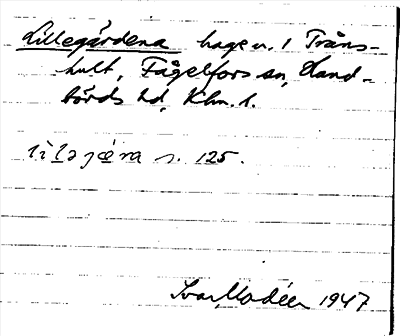 Lillegårdena hage n. i Tråns-
hult, Fågelfors sn, Hand-
börds hd, Klm. l.
lìlǝjæ̀ra s. 125.
Ivar Modéer 1947